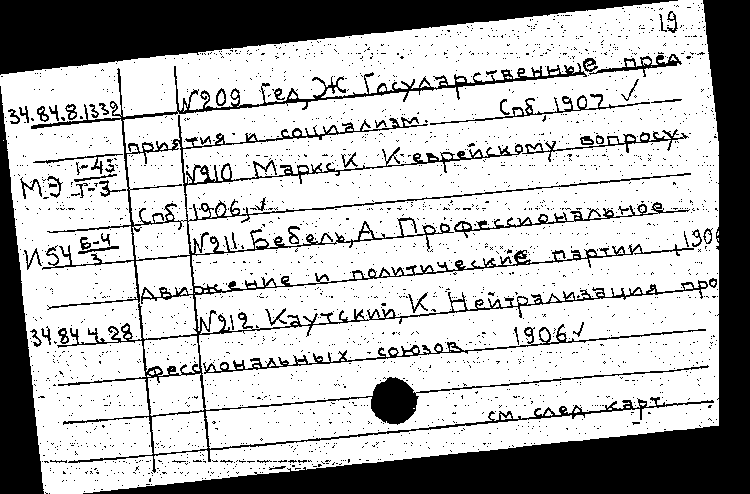 19
34.84.8.1332 №209 Гед, Ж. Государственные пред-
приятия и социализм. Спб, 1907. ✓
МЭ Г-43/Г-3 №210 Маркс, К. К еврейскому вопросу.
Спб, 1906, ✓
И54 Б-4/3 №211. Бебель, А. Профессиональное
движение и политические партии, 1906
34.84.4.28 №212. Каутский, К. Нейтрализация про
фессиональных союзов 1906. ✓
см. след. карт.